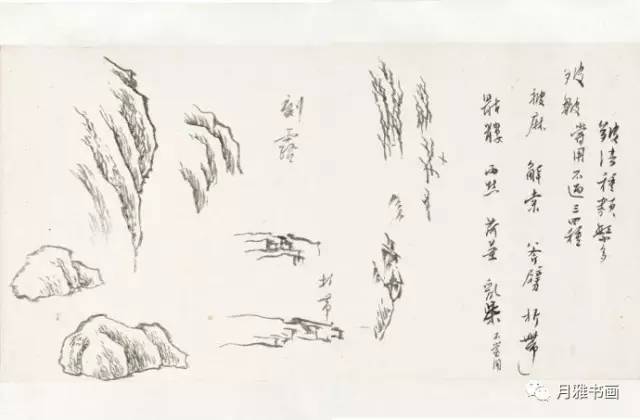 皴法種類繁多
常用不過三四種
披麻 解索 斧劈 折帶
骷髏 雨點 荷葉 亂柴 不常用
折帶
月雅书画